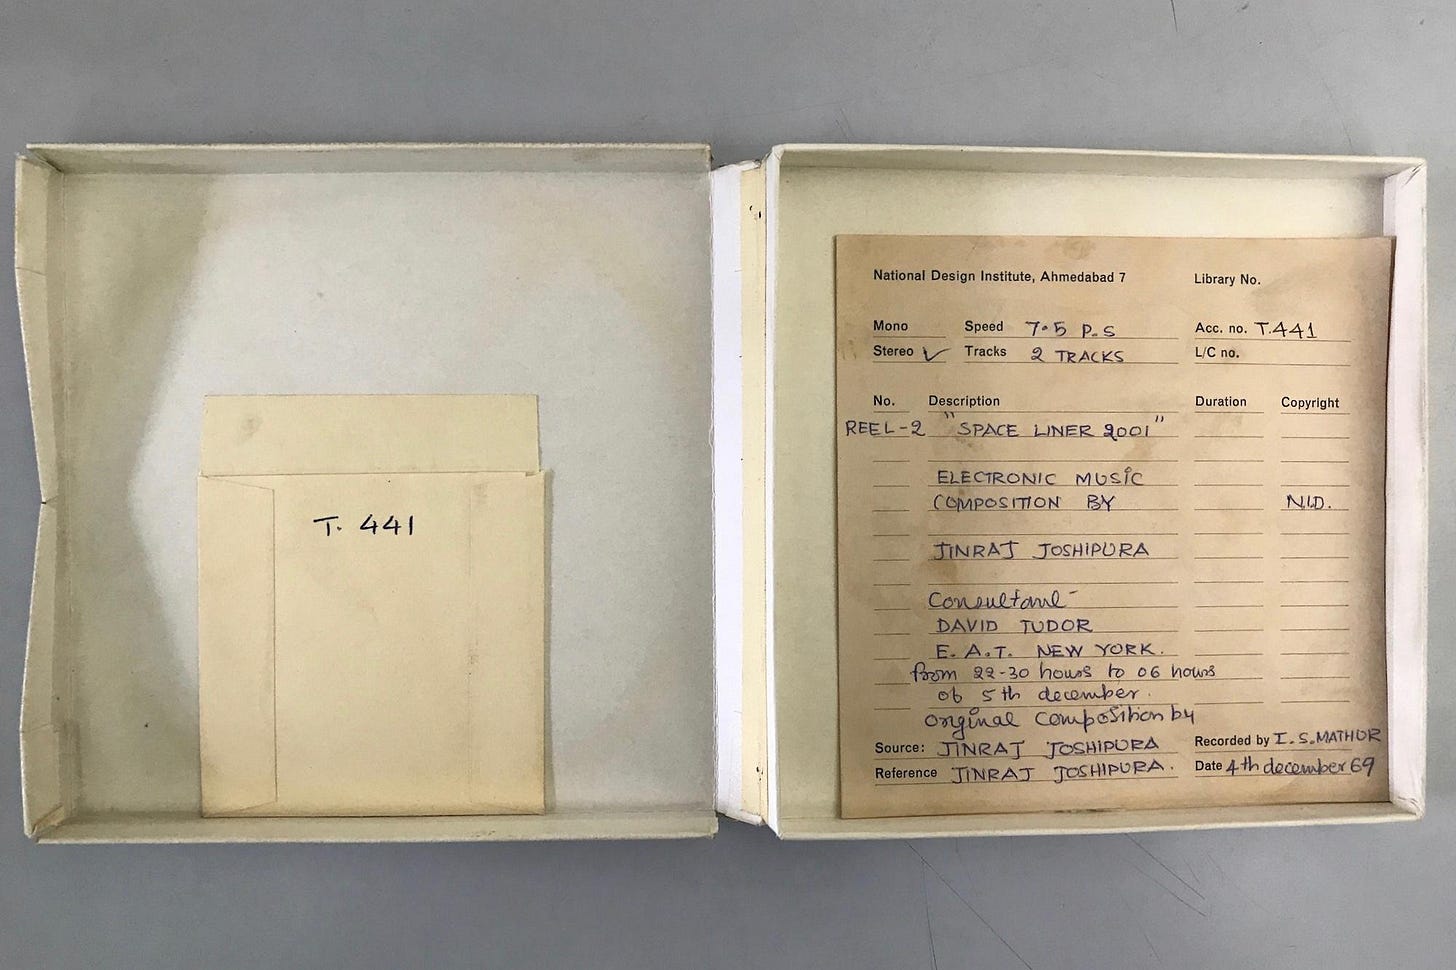 T. 441
National Design Institute, Ahmedabad 7 Library No.
Mono Speed 7.5 P.S Acc. no. T.441
Stereo ✓ Tracks 2 TRACKS L/C no.
No. Description Duration Copyright
REEL-2 "SPACE LINER 2001"
ELECTRONIC MUSIC
COMPOSITION BY N.I.D.
JINRAJ JOSHIPURA
Consultant
DAVID TUDOR
E. A.T. NEW YORK.
from 22-30 hours to 06 hours
of 5th december.
original composition by
Source: JINRAJ JOSHIPURA Recorded by I. S. MATHUR
Reference JINRAJ JOSHIPURA. Date 4th december 69